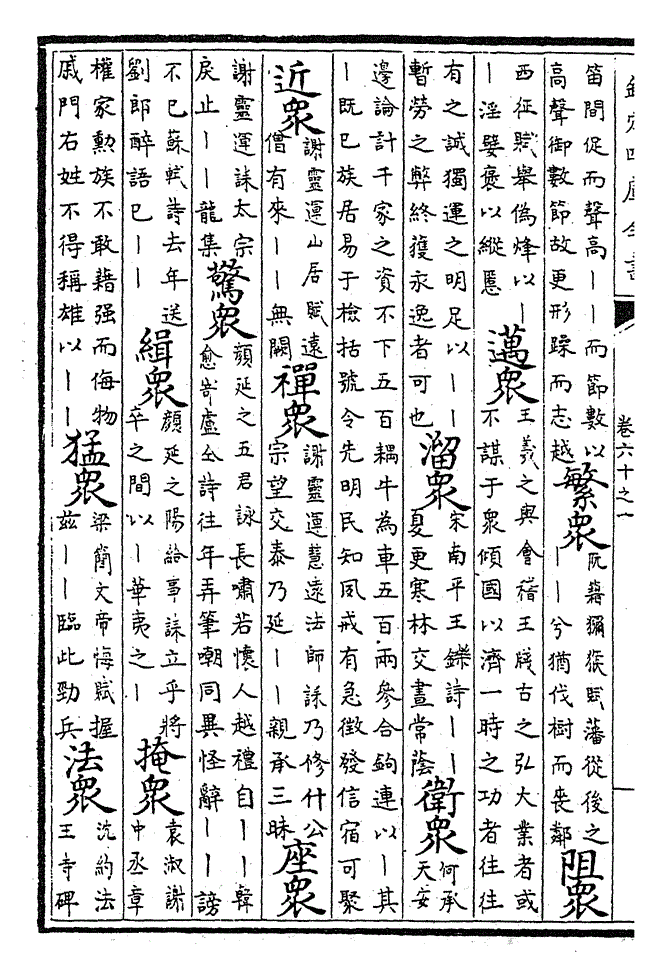 欽定四庫全書
卷六十之一
笛間促而聲高丨丨而節數以高聲御數節故更形躁而志越繁衆阮籍獼猴賦藩從後之丨丨兮猶伐樹而喪鄰阻衆
西征賦舉偽烽以丨丨淫嬖褒以縱慝邁衆王羲之與會稽王牋古之弘大業者或不謀于衆傾國以濟一時之功者往往
有之誠獨運之明足以丨丨暫勞之弊終獲永逸者可也溜衆宋南平王鑠詩丨丨夏更寒林交晝常蔭衛衆何承天安
邊論計千家之資不下五百耦牛為車五百兩參合鈎連以丨其丨既已族居易于檢括號令先明民知夙戒有急徵發信宿可聚
近衆謝靈運山居賦遠僧有來丨丨無闕禪衆謝靈運慧遠法師誄乃修什公宗望交泰乃延丨丨親承三昧座衆
謝靈運誄太宗戾止丨丨龍集驚衆顔延之五君詠長嘯若懷人越禮自丨丨韓愈寄盧仝詩往年弄筆嘲同異怪辭丨丨謗
不已蘇軾詩去年送劉郎醉語已丨丨緝衆顔延之陽給事誄立乎將卒之間以丨丨華夷之丨掩衆袁淑謝中丞章
權家勲族不敢藉强而侮物戚門右姓不得稱雄以丨丨猛衆梁簡文帝悔賦握兹丨丨臨此勁兵法衆沈約法王寺碑